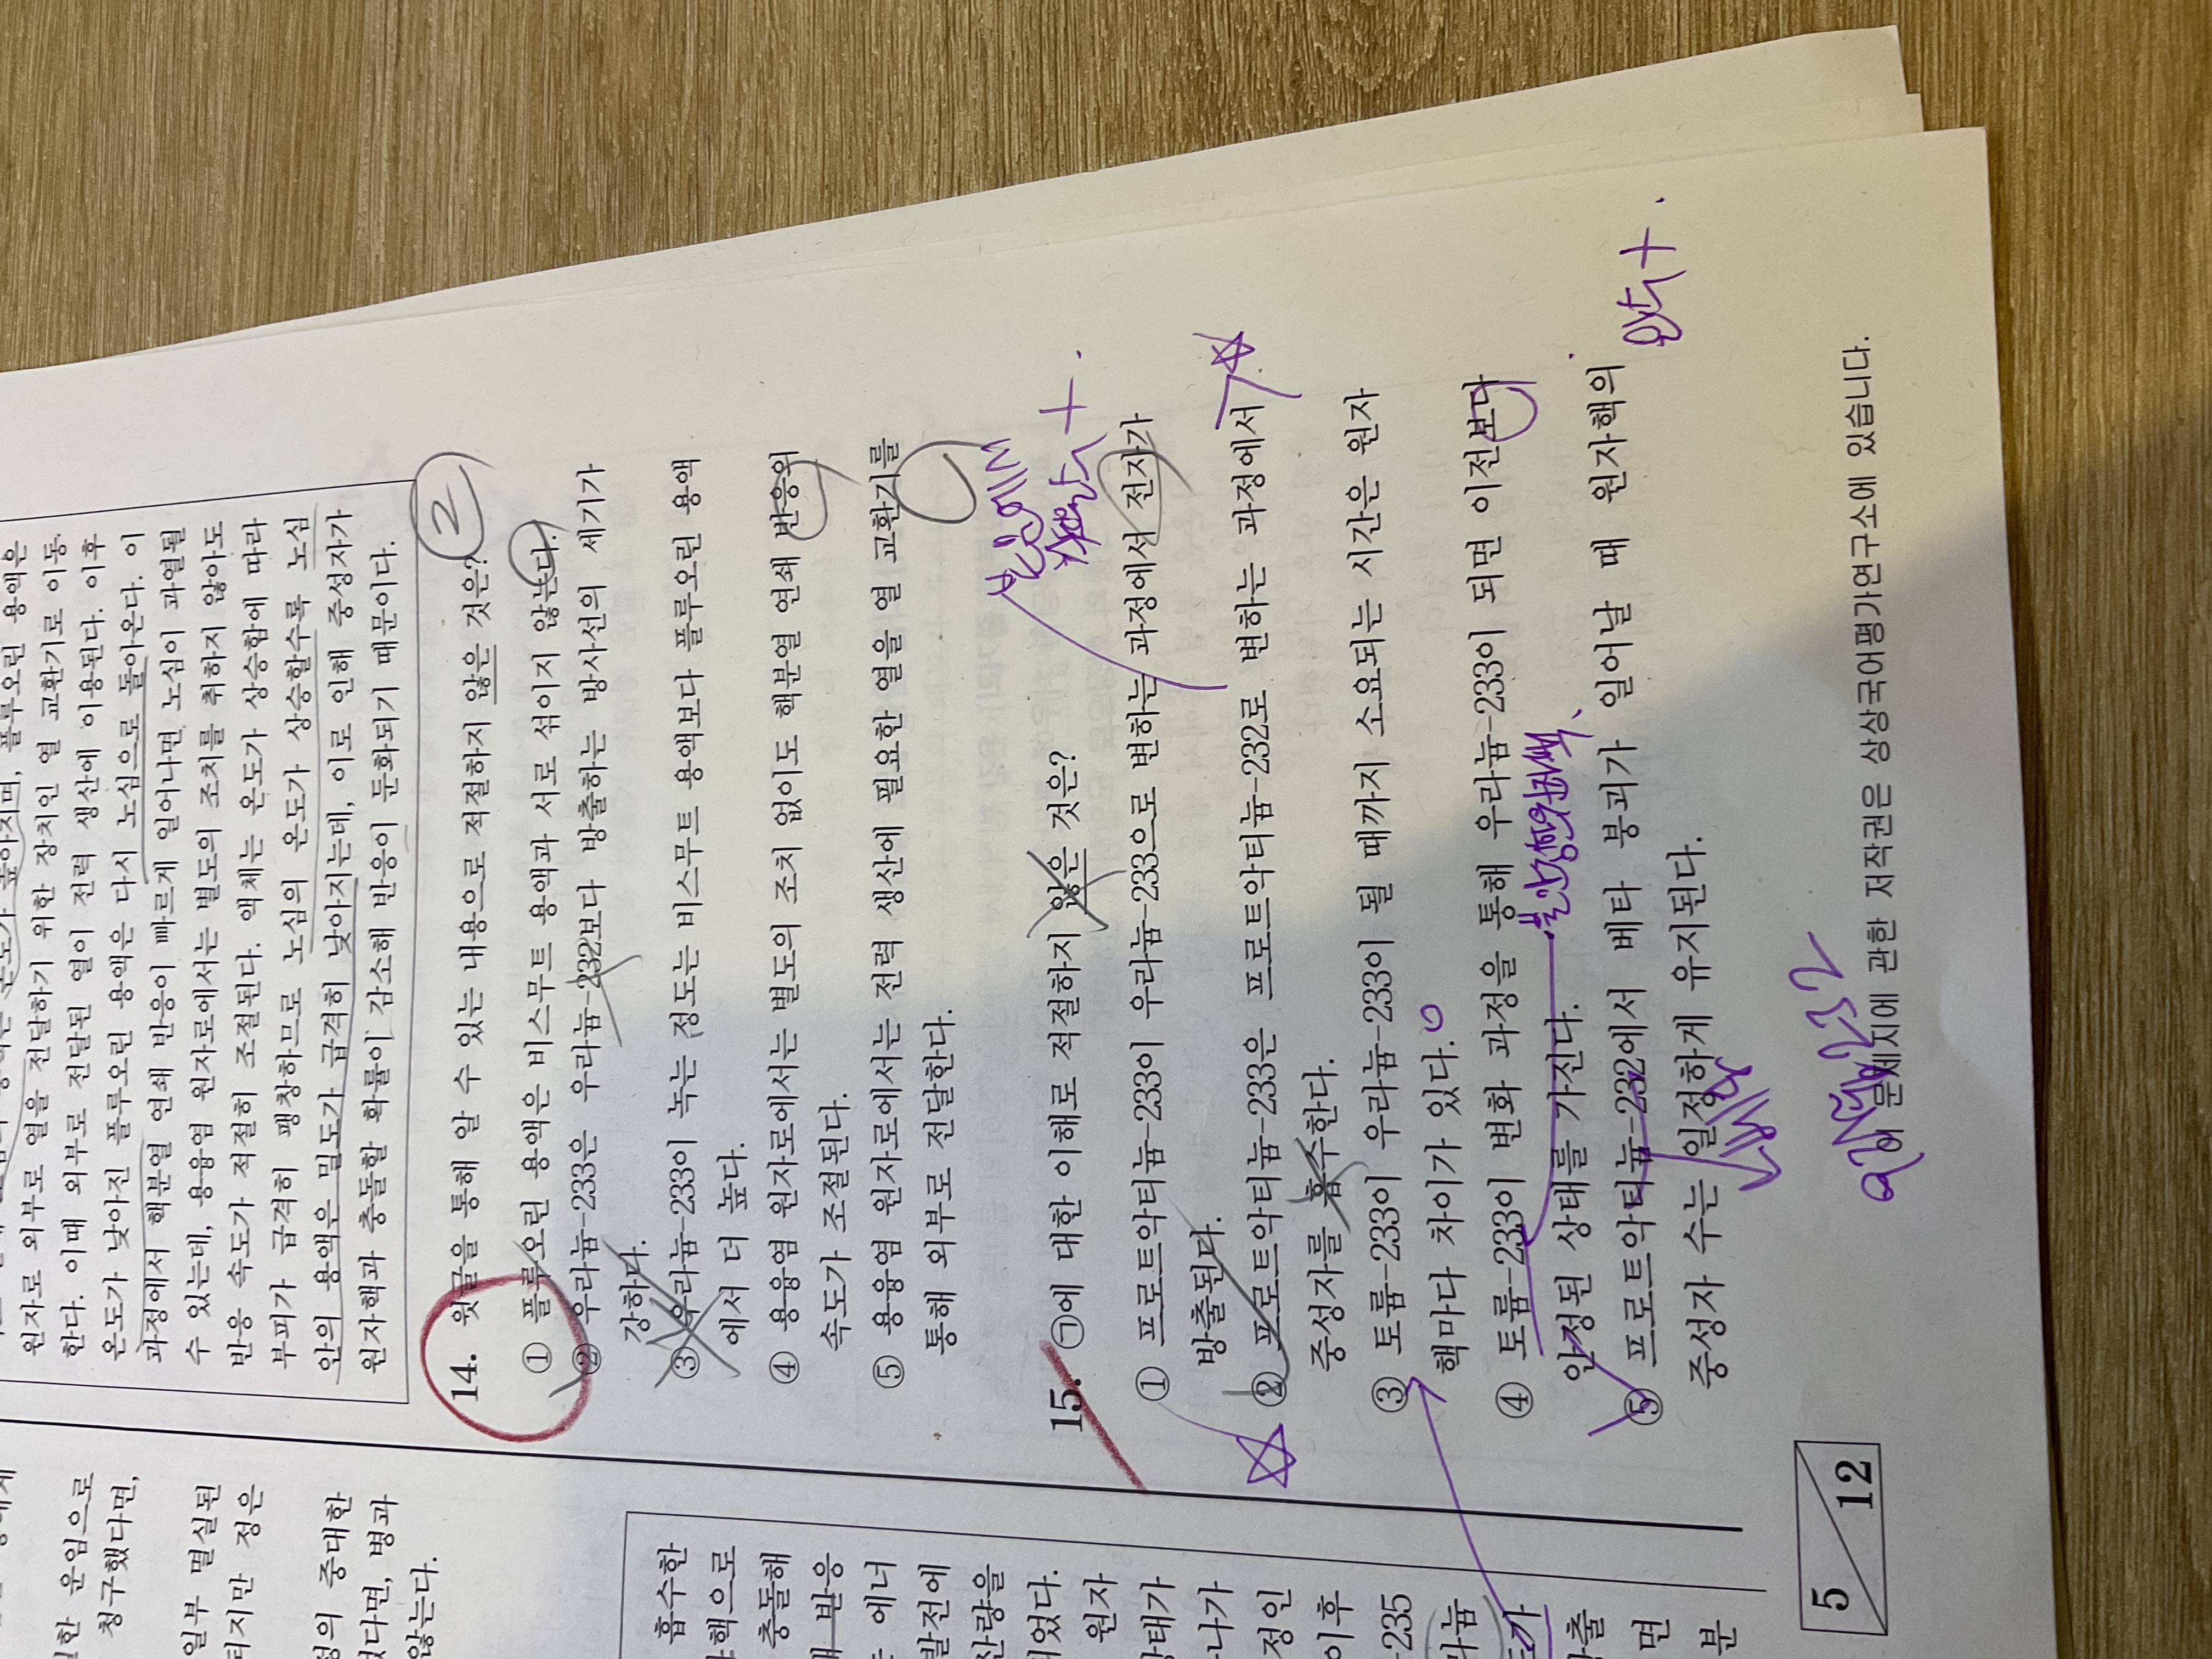 원자로 외부로 열을 전달하기 위한 장치인 열 교환기로 이동
한다. 이때 외부로 전달된 열이 전력 생산에 이용된다. 이후
온도가 낮아진 플루오린 용액은 다시 노심으로 돌아온다. 이
과정에서 핵분열 연쇄 반응이 빠르게 일어나면 노심이 과열될
수 있는데, 용융염 원자로에서는 별도의 조치를 취하지 않아도
반응 속도가 적절히 조절된다. 액체는 온도가 상승함에 따라
부피가 급격히 팽창하므로 노심의 온도가 상승할수록 노심
안의 용액은 밀도가 급격히 낮아지는데, 이로 인해 중성자가
원자핵과 충돌할 확률이 감소해 반응이 둔화되기 때문이다.
14. 윗글을 통해 알 수 있는 내용으로 적절하지 않은 것은?
2
① 플루오린 용액은 비스무트 용액과 서로 섞이지 않는다.
② 우라늄-233은 우라늄-232보다 방출하는 방사선의 세기가
강하다.
③ 우라늄-233이 녹는 정도는 비스무트 용액보다 플루오린 용액
에서 더 높다.
④ 용융염 원자로에서는 별도의 조치 없이도 핵분열 연쇄 반응의
속도가 조절된다.
⑤ 용융염 원자로에서는 전력 생산에 필요한 열을 열 교환기를
통해 외부로 전달한다.
15. ㉠에 대한 이해로 적절하지 않은 것은?
① 프로트악티늄-233이 우라늄-233으로 변하는 과정에서 전자가
방출된다.
② 프로트악티늄-233은 프로트악티늄-232로 변하는 과정에서
중성자를 흡수한다.
③ 토륨-233이 우라늄-233이 될 때까지 소요되는 시간은 원자
핵마다 차이가 있다.
④ 토륨-233이 변화 과정을 통해 우라늄-233이 되면 이전보다
안정된 상태를 가진다.
불안정한원자핵
⑤ 프로트악티늄-232에서 베타 붕괴가 일어날 때 원자핵의
중성자 수는 일정하게 유지된다.
양+
우라늄232
이 문제지에 관한 저작권은 상상국어평가연구소에 있습니다.
5
12
한 운임으로
청구했다면,
일부 멸실된
터지만 정은
성의 중대한
었다면, 병과
않는다.
흡수한
핵으로
충돌해
반응
에너
발전에
산량을
되었다.
원자
상태가
나가
정인
이후
-235
라늄
방출
면
분